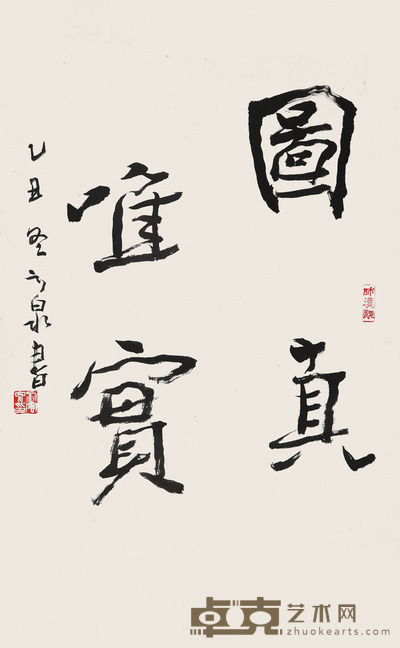 圖真
唯實
乙丑冬云泉書
卓克艺术网
zhuokearts.com